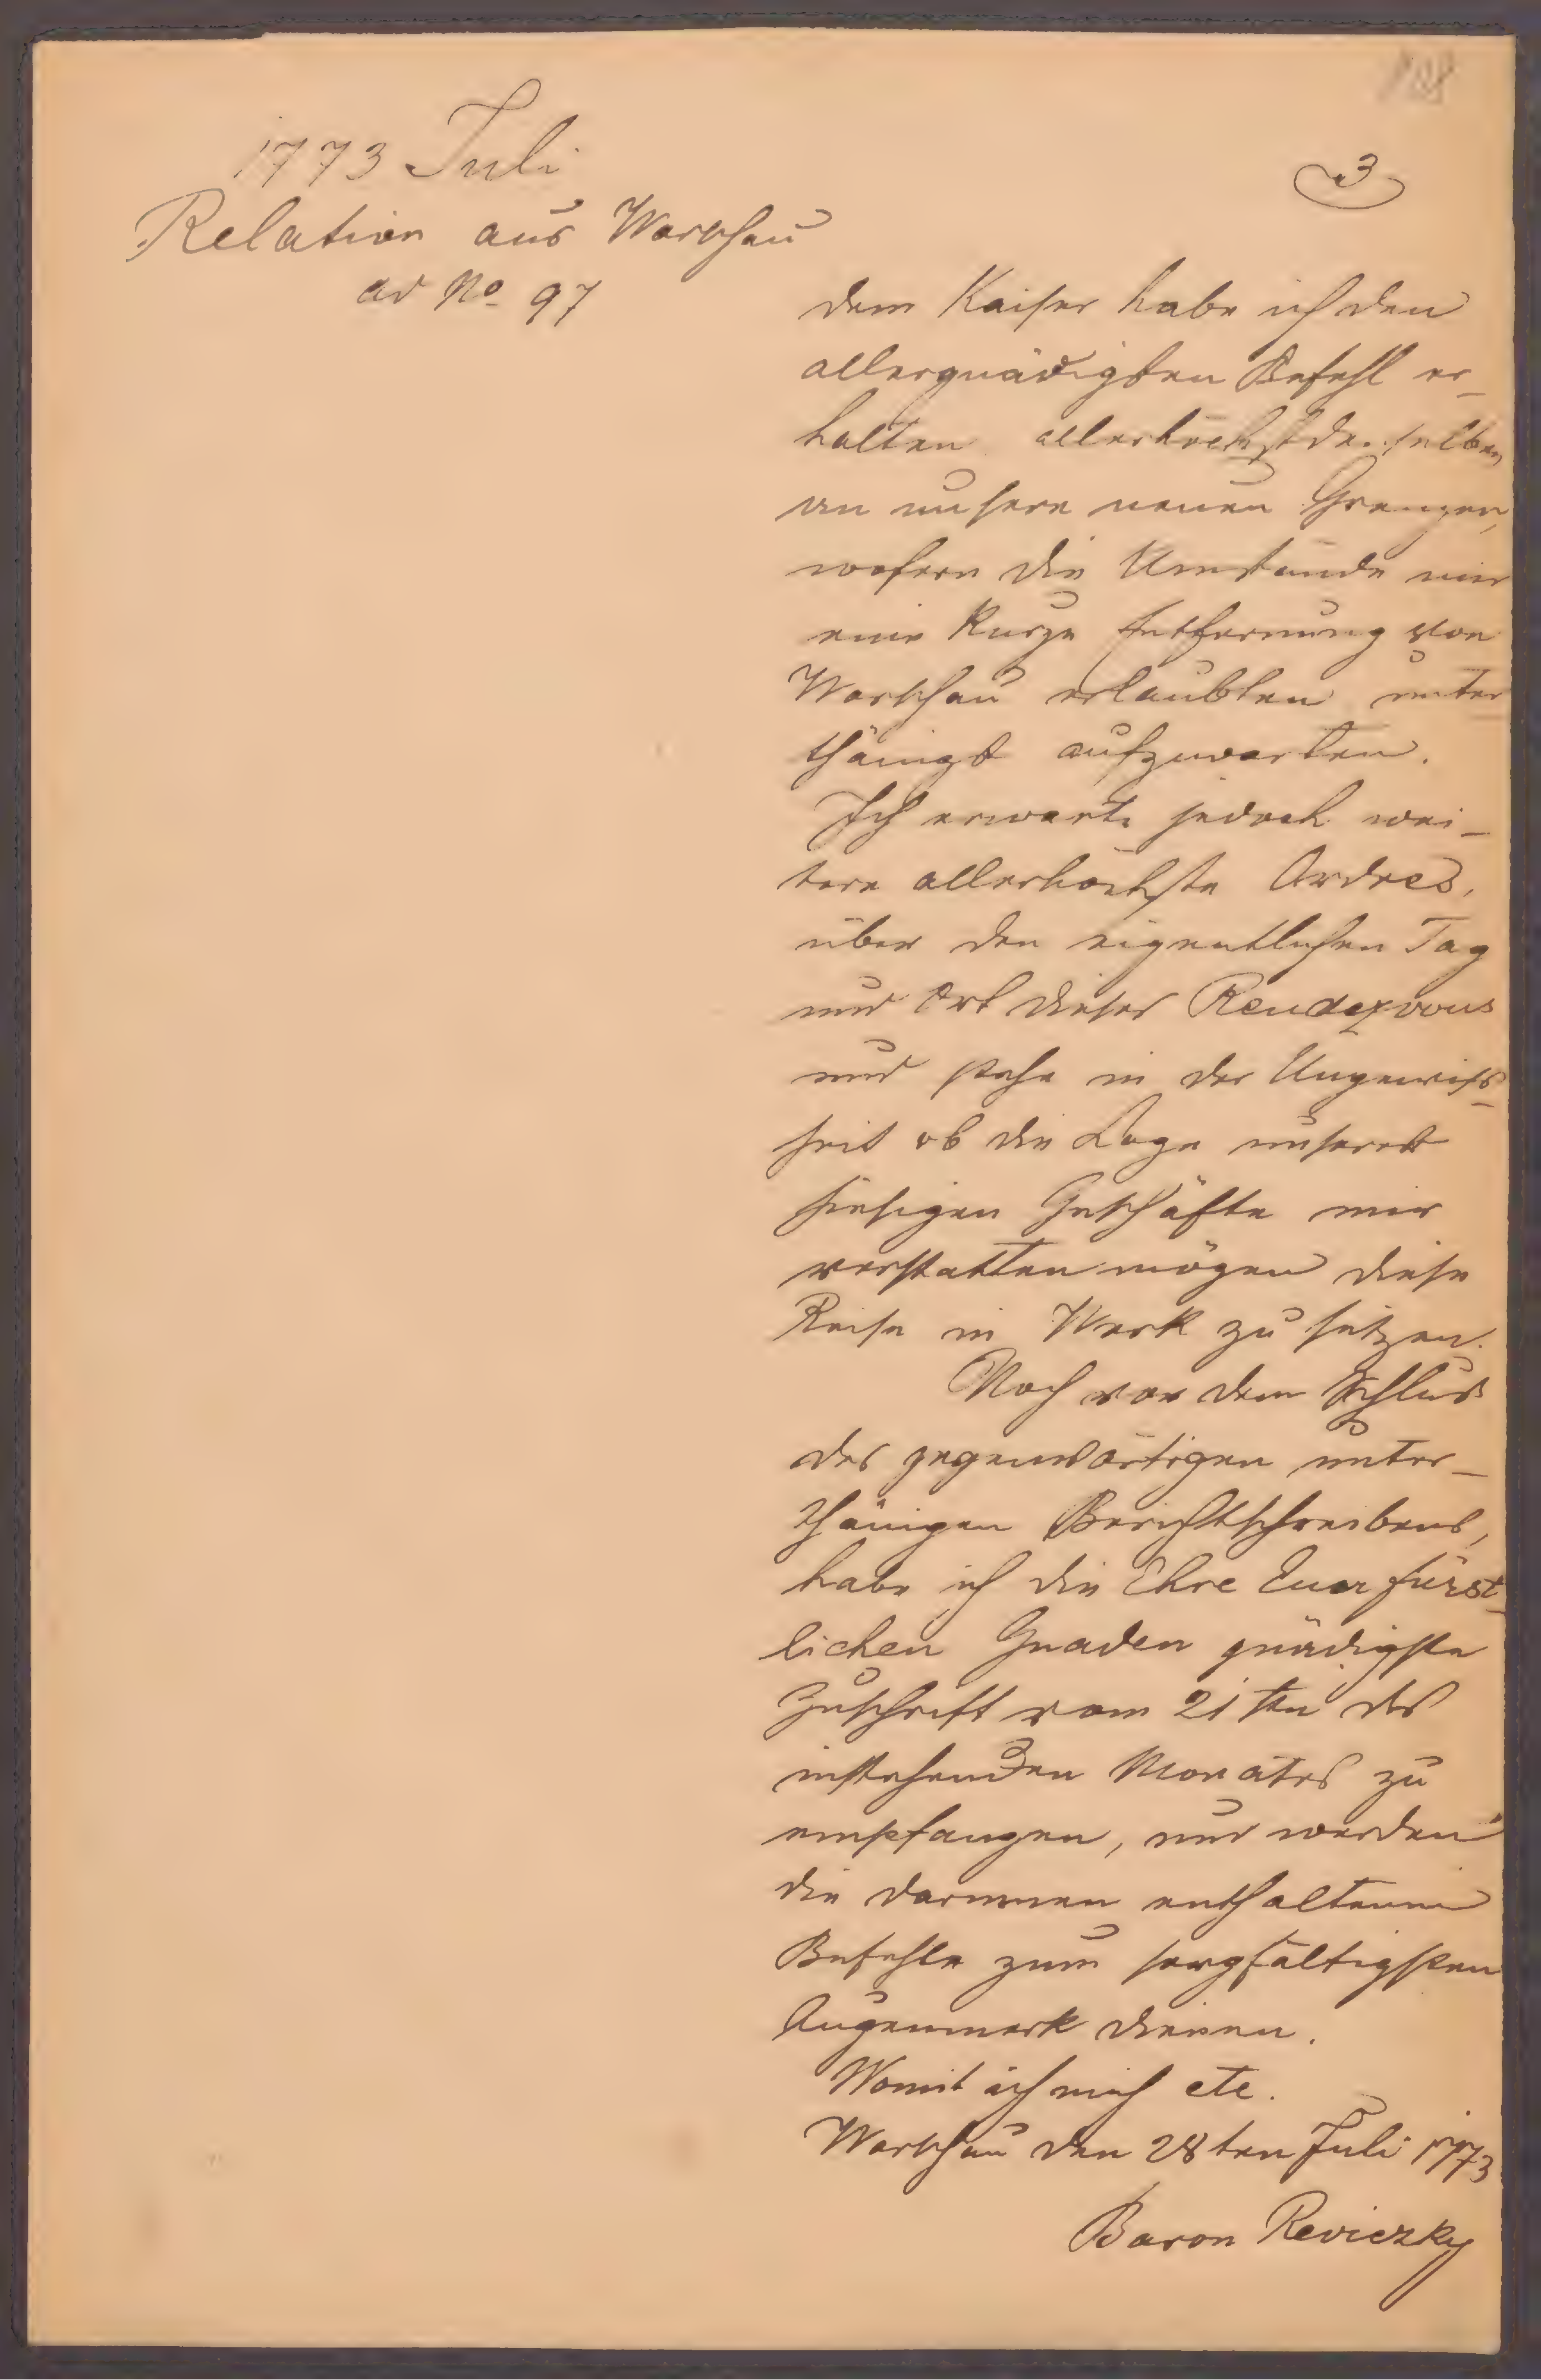 1773 Juli
Relation aus Warschau
ad No 97
3
dem Kaiser habe ich den
allergnädigsten Befehl er-
halten allerhöchstdenselben
an unsere neuen Grenzen,
wofern die Umstände mir
eine kurze Entfernung von
Warschau erlaubten unter
thänigst aufzuwarten.
Ich erwarte jedoch wei-
tere allerhöchste Ordres,
über den eigentlichen Tag
und Ort dieses Rendezvous
und stehe in der Ungewiss-
heit ob die Lage unserer
hiesigen Geschäfte mir
verstatten mögen diese
Reise in Werk zu setzen.
Noch vor dem Schluss
des gegenwärtigen unter-
thänigen Berichtschreibens,
habe ich die Ehre Euer fürst-
lichen Gnaden gnädigste
Zuschrift vom 21ten des
instehenden Monates zu
empfangen, und werden
die darinnen enthaltenen
Befehle zum sorgfältigsten
Augenmerk dienen.
Womit ich mich etc.
Warschau den 28ten Juli 1773
Baron Reviczky